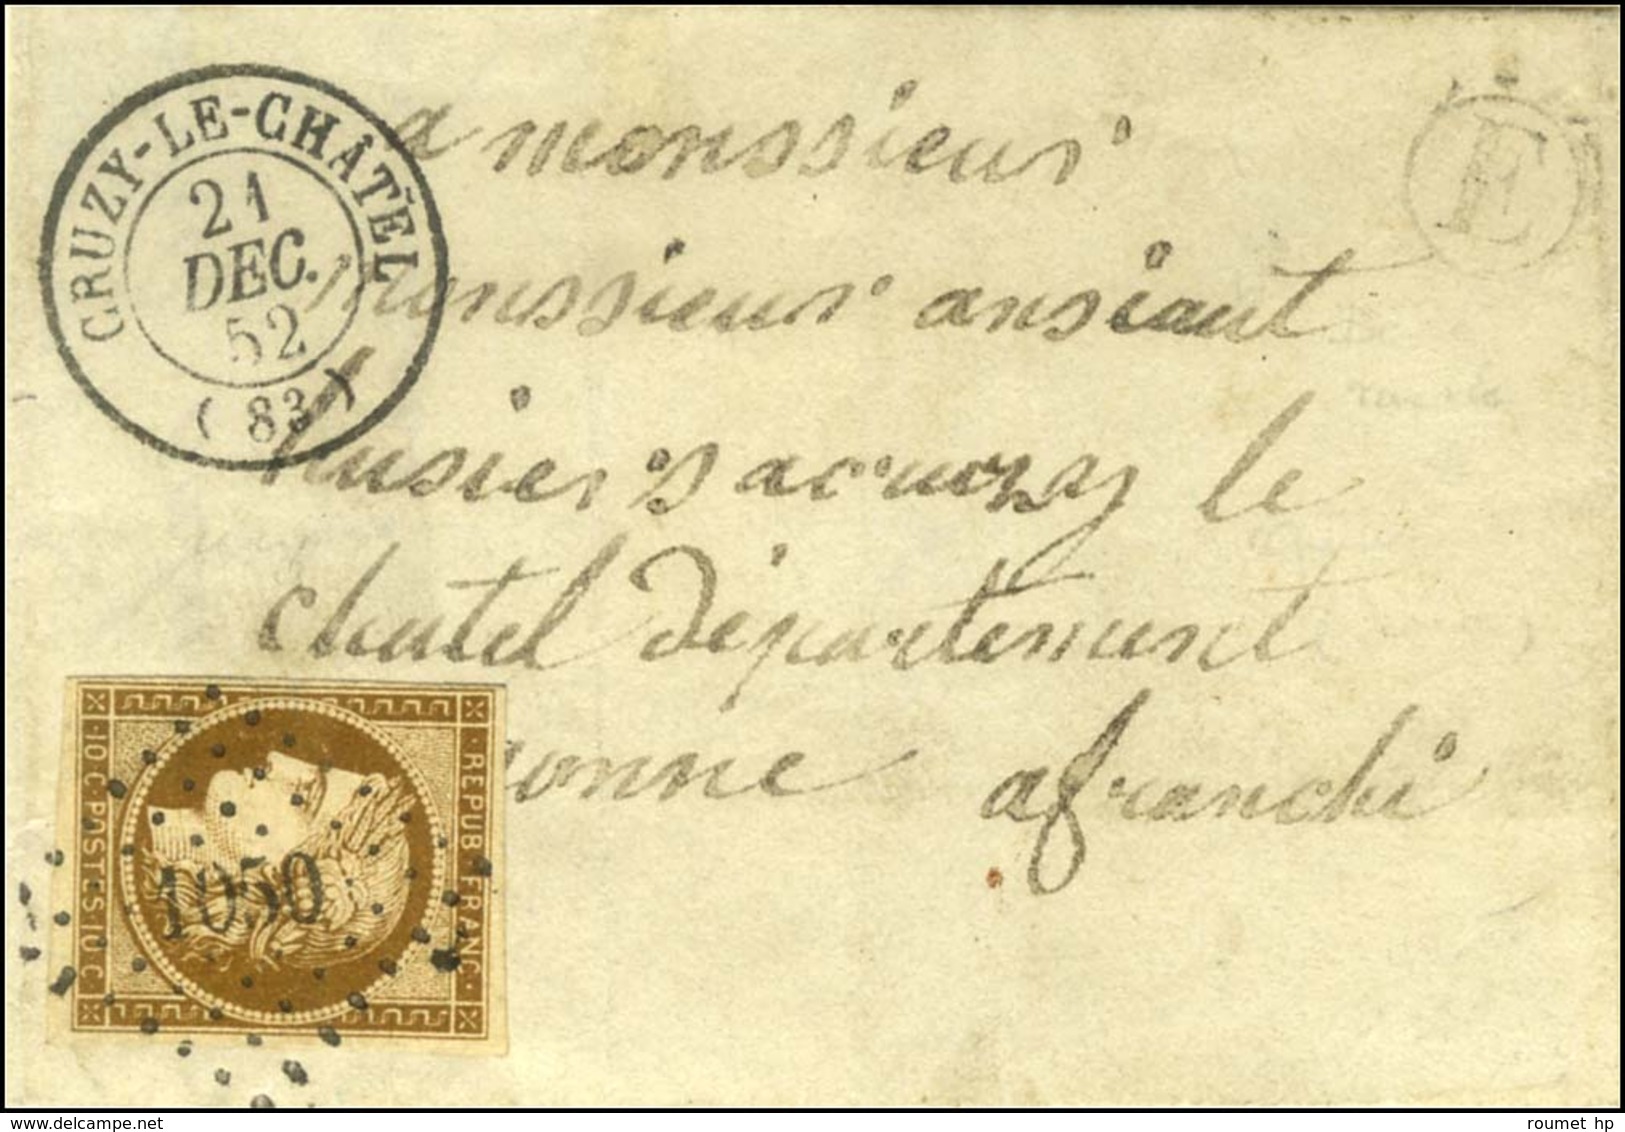 CRUZY-LE-CHÂTEL
21
DEC.
52
( 83 )
E
a monssieur
Monssieur ansiaut
husier a cruzy le
chatel département
onne afranchi
· REPUB · FRANC ·
· 10 C · POSTES · 10 C ·
1050
roumet hp